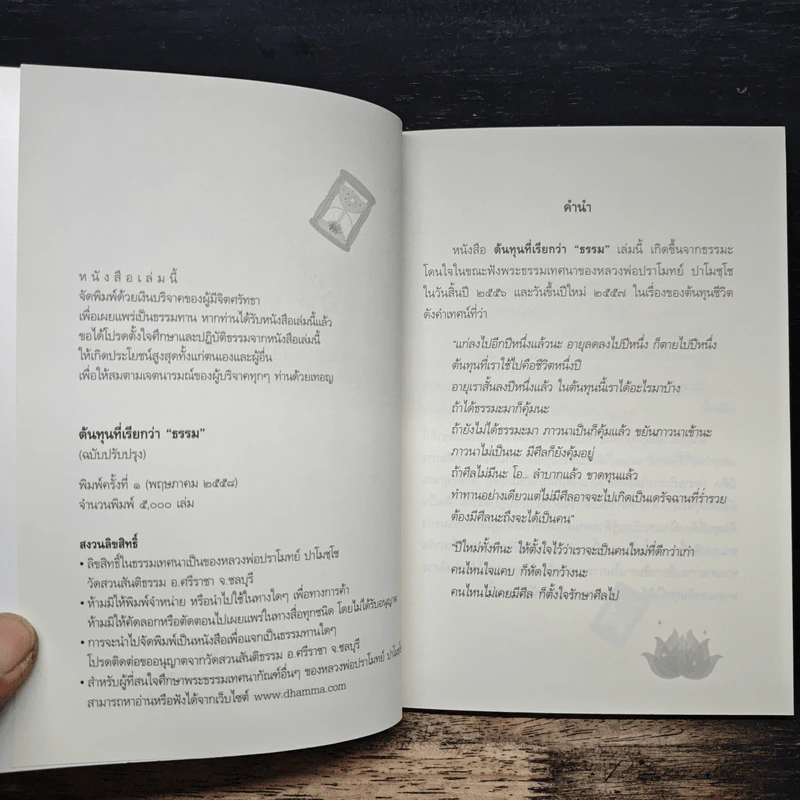 ห นั ง สื อ เ ล่ ม นี้
จัดพิมพ์ด้วยเงินบริจาคของผู้มีจิตศรัทธา
เพื่อเผยแพร่เป็นธรรมทาน หากท่านได้รับหนังสือเล่มนี้แล้ว
ขอได้โปรดตั้งใจศึกษาและปฏิบัติธรรมจากหนังสือเล่มนี้
ให้เกิดประโยชน์สูงสุดทั้งแก่ตนเองและผู้อื่น
เพื่อให้สมตามเจตนารมณ์ของผู้บริจาคทุกๆ ท่านด้วยเทอญ
ต้นทุนที่เรียกว่า “ธรรม”
(ฉบับปรับปรุง)
พิมพ์ครั้งที่ ๑ (พฤษภาคม ๒๕๕๘)
จำนวนพิมพ์ ๕,๐๐๐ เล่ม
สงวนลิขสิทธิ์
• ลิขสิทธิ์ในธรรมเทศนาเป็นของหลวงพ่อปราโมทย์ ปาโมชฺโช
วัดสวนสันติธรรม อ.ศรีราชา จ.ชลบุรี
• ห้ามมิให้พิมพ์จำหน่าย หรือนำไปใช้ในทางใดๆ เพื่อทางการค้า
ห้ามมิให้คัดลอกหรือตัดตอนไปเผยแพร่ในทางสื่อทุกชนิด โดยไม่ได้รับอนุญาต
• การจะนำไปจัดพิมพ์เป็นหนังสือเพื่อแจกเป็นธรรมทานใดๆ
โปรดติดต่อขออนุญาตจากวัดสวนสันติธรรม อ.ศรีราชา จ.ชลบุรี
• สำหรับผู้ที่สนใจศึกษาพระธรรมเทศนากัณฑ์อื่นๆ ของหลวงพ่อปราโมทย์
สามารถหาอ่านหรือฟังได้จากเว็บไซต์ www.dhamma.com
คำนำ
หนังสือ ต้นทุนที่เรียกว่า “ธรรม” เล่มนี้ เกิดขึ้นจากธรรมะ
โดนใจในขณะฟังพระธรรมเทศนาของหลวงพ่อปราโมทย์ ปาโมชฺโช
ในวันสิ้นปี ๒๕๕๖ และวันขึ้นปีใหม่ ๒๕๕๗ ในเรื่องของต้นทุนชีวิต
ดังคำเทศน์ที่ว่า
“แก่ลงไปอีกปีหนึ่งแล้วนะ อายุลดลงไปปีหนึ่ง ก็ตายไปปีหนึ่ง
ต้นทุนที่เราใช้ไปคือชีวิตหนึ่งปี
อายุเราสั้นลงปีหนึ่งแล้ว ในต้นทุนนี้เราได้อะไรมาบ้าง
ถ้าได้ธรรมะมาก็คุ้มนะ
ถ้ายังไม่ได้ธรรมะมา ภาวนาเป็นก็คุ้มแล้ว ขยันภาวนาเข้านะ
ภาวนาไม่เป็นนะ มีศีลก็ยังคุ้มอยู่
ถ้าศีลไม่มีนะ โอ.. ลำบากแล้ว ขาดทุนแล้ว
ทำทานอย่างเดียวแต่ไม่มีศีลอาจจะไปเกิดเป็นเดรัจฉานที่ร่ำรวย
ต้องมีศีลนะถึงจะได้เป็นคน”
“ปีใหม่ทั้งทีนะ ให้ตั้งใจไว้ว่าเราจะเป็นคนใหม่ที่ดีกว่าเก่า
คนไหนใจแคบ ก็หัดใจกว้างนะ
คนไหนไม่เคยมีศีล ก็ตั้งใจรักษาศีลไป